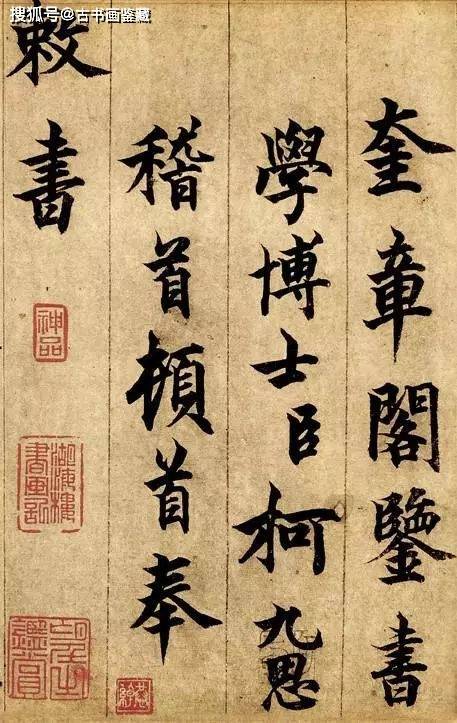 搜狐号@古书画鉴藏
奎章閣鑒書
學博士臣柯九思
稽首頓首奉
敕書
神品